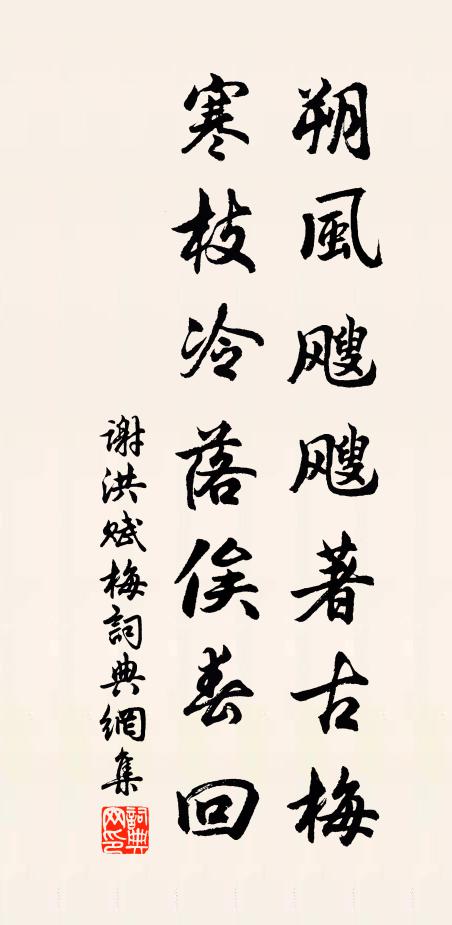 朔風颼颼著古梅
寒枝冷落俟春回
謝洪賦梅詞典網集
詞典網印